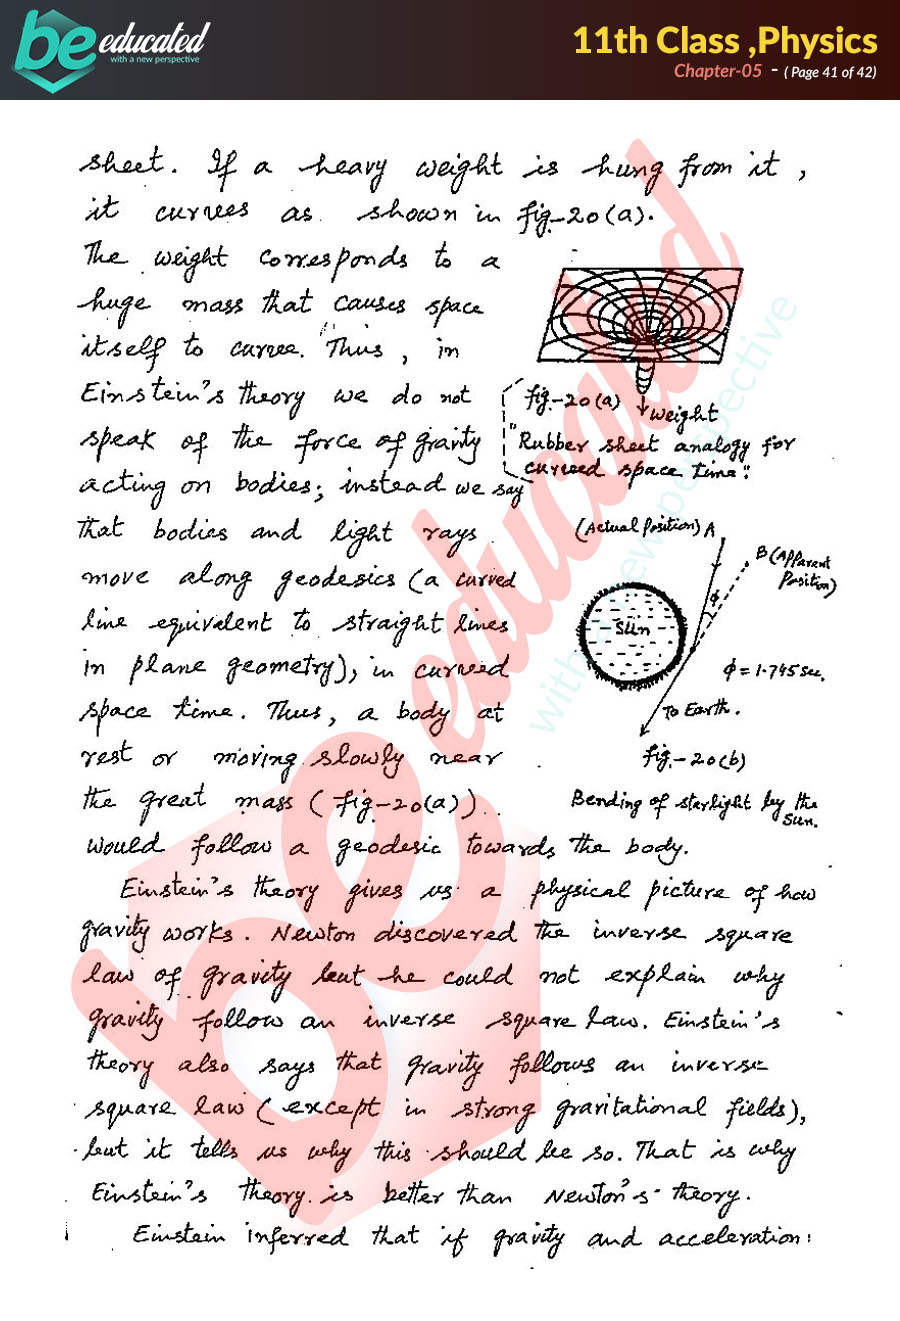 be educated
with a new perspective
11th Class ,Physics
Chapter-05 - ( Page 41 of 42)
sheet. If a heavy weight is hung from it,
it curves as shown in fig-20(a).
The weight corresponds to a
huge mass that causes space
itself to curve. Thus, in
Einstein's theory we do not
speak of the force of gravity
acting on bodies; instead we say
that bodies and light rays
move along geodesics (a curved
line equivalent to straight lines
in plane geometry), in curved
space time. Thus, a body at
rest or moving slowly near
the great mass (fig-20(a)).
would follow a geodesic towards the body.
fig-20(a)
weight
"Rubber sheet analogy for
curved space time".
(Actual Position) A
B (Apparent
Position)
ϕ
Sun
ϕ = 1.745 sec.
To Earth.
fig.-20(b)
Bending of starlight by the
Sun.
Einstein's theory gives us a physical picture of how
gravity works. Newton discovered the inverse square
law of gravity but he could not explain why
gravity follow an inverse square law. Einstein's
theory also says that gravity follows an inverse
square law (except in strong gravitational fields),
but it tells us why this should be so. That is why
Einstein's theory is better than Newton's theory.
Einstein inferred that if gravity and acceleration
be educated
with a new perspective